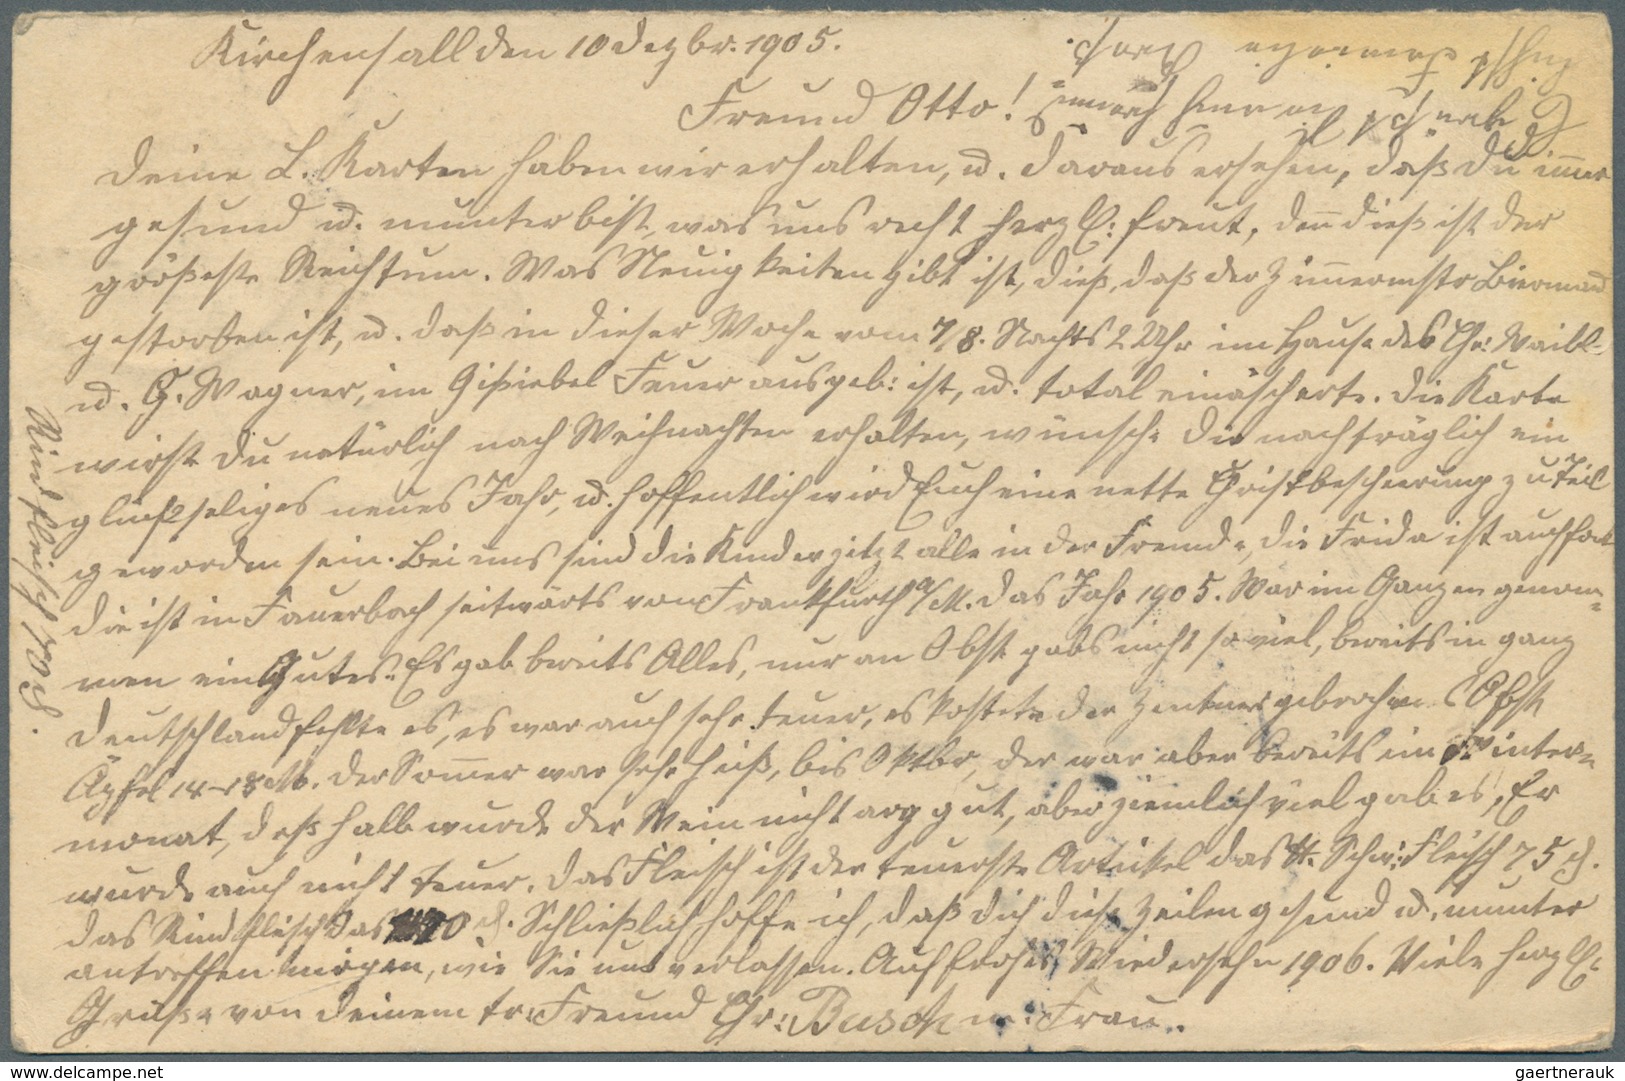 Kirchensall den 10 Dezbr. 1905.
Freund Otto!
Deine L. Karten haben wir erhalten, u. daraus ersehen, daß Du im̅er
gesund u. munter bist, was uns recht herzl: freut, den̅ dieß ist der
größeste Reichtum. Was Neuigkeiten gibt ist, dieß, daß der Zim̅ermstr Biermand
gestorben ist, u. daß in dieser Woche vom 7/8. Nachts 2 Uhr im Hause des Chr: Waibl-
u. G. Wagner, im Feuer ausgeb: ist, u. total einäscherte. Die Karte
wirst Du natürlich nach Weihnachten erhalten, wünsche Dir nachträglich ein
glückseliges neues Jahr, u. hoffentlich wird Euch eine nette Christbescheerung zu Teil
geworden sein. Bei uns sind die Kinder jetzt alle in der Fremde, die Frida ist auch fort
die ist in Fauerbach seitwärts von Frankfurth a/M. Das Jahr 1905. War im Ganzen genom-
men ein Gutes. Es gab bereits Alles, nur an Obst gabs nicht so viel, bereits in ganz
Deutschland fehlte es, es war auch sehr teuer, es kostete der Zentner gebrochene Obst
Äpfel 14-18 M. Der Som̅er war sehr heiß, bis Oktbr, der war aber bereits ein Winter-
monat, deßhalb wurde der Wein nicht arg gut, aber ziemlich viel gab es, Er
wurde auch nicht teuer. Das Fleisch ist der teuerste Artickel das ℔. Schw: Fleisch 75 ₰.
das Rindfleisch das 70 ₰. Schließlich hoffe ich, daß Dich diese Zeilen gesund u. munter
antreffen mögen, wie Sie uns verlassen. Auf frohes Wiedersehn 1906. Viele herzl:
Grüße von Deinem tr: Freund Chr: Busch u: Frau..
Rindfleisch 70 ₰.
www.delcampe.net
gaertnerauk